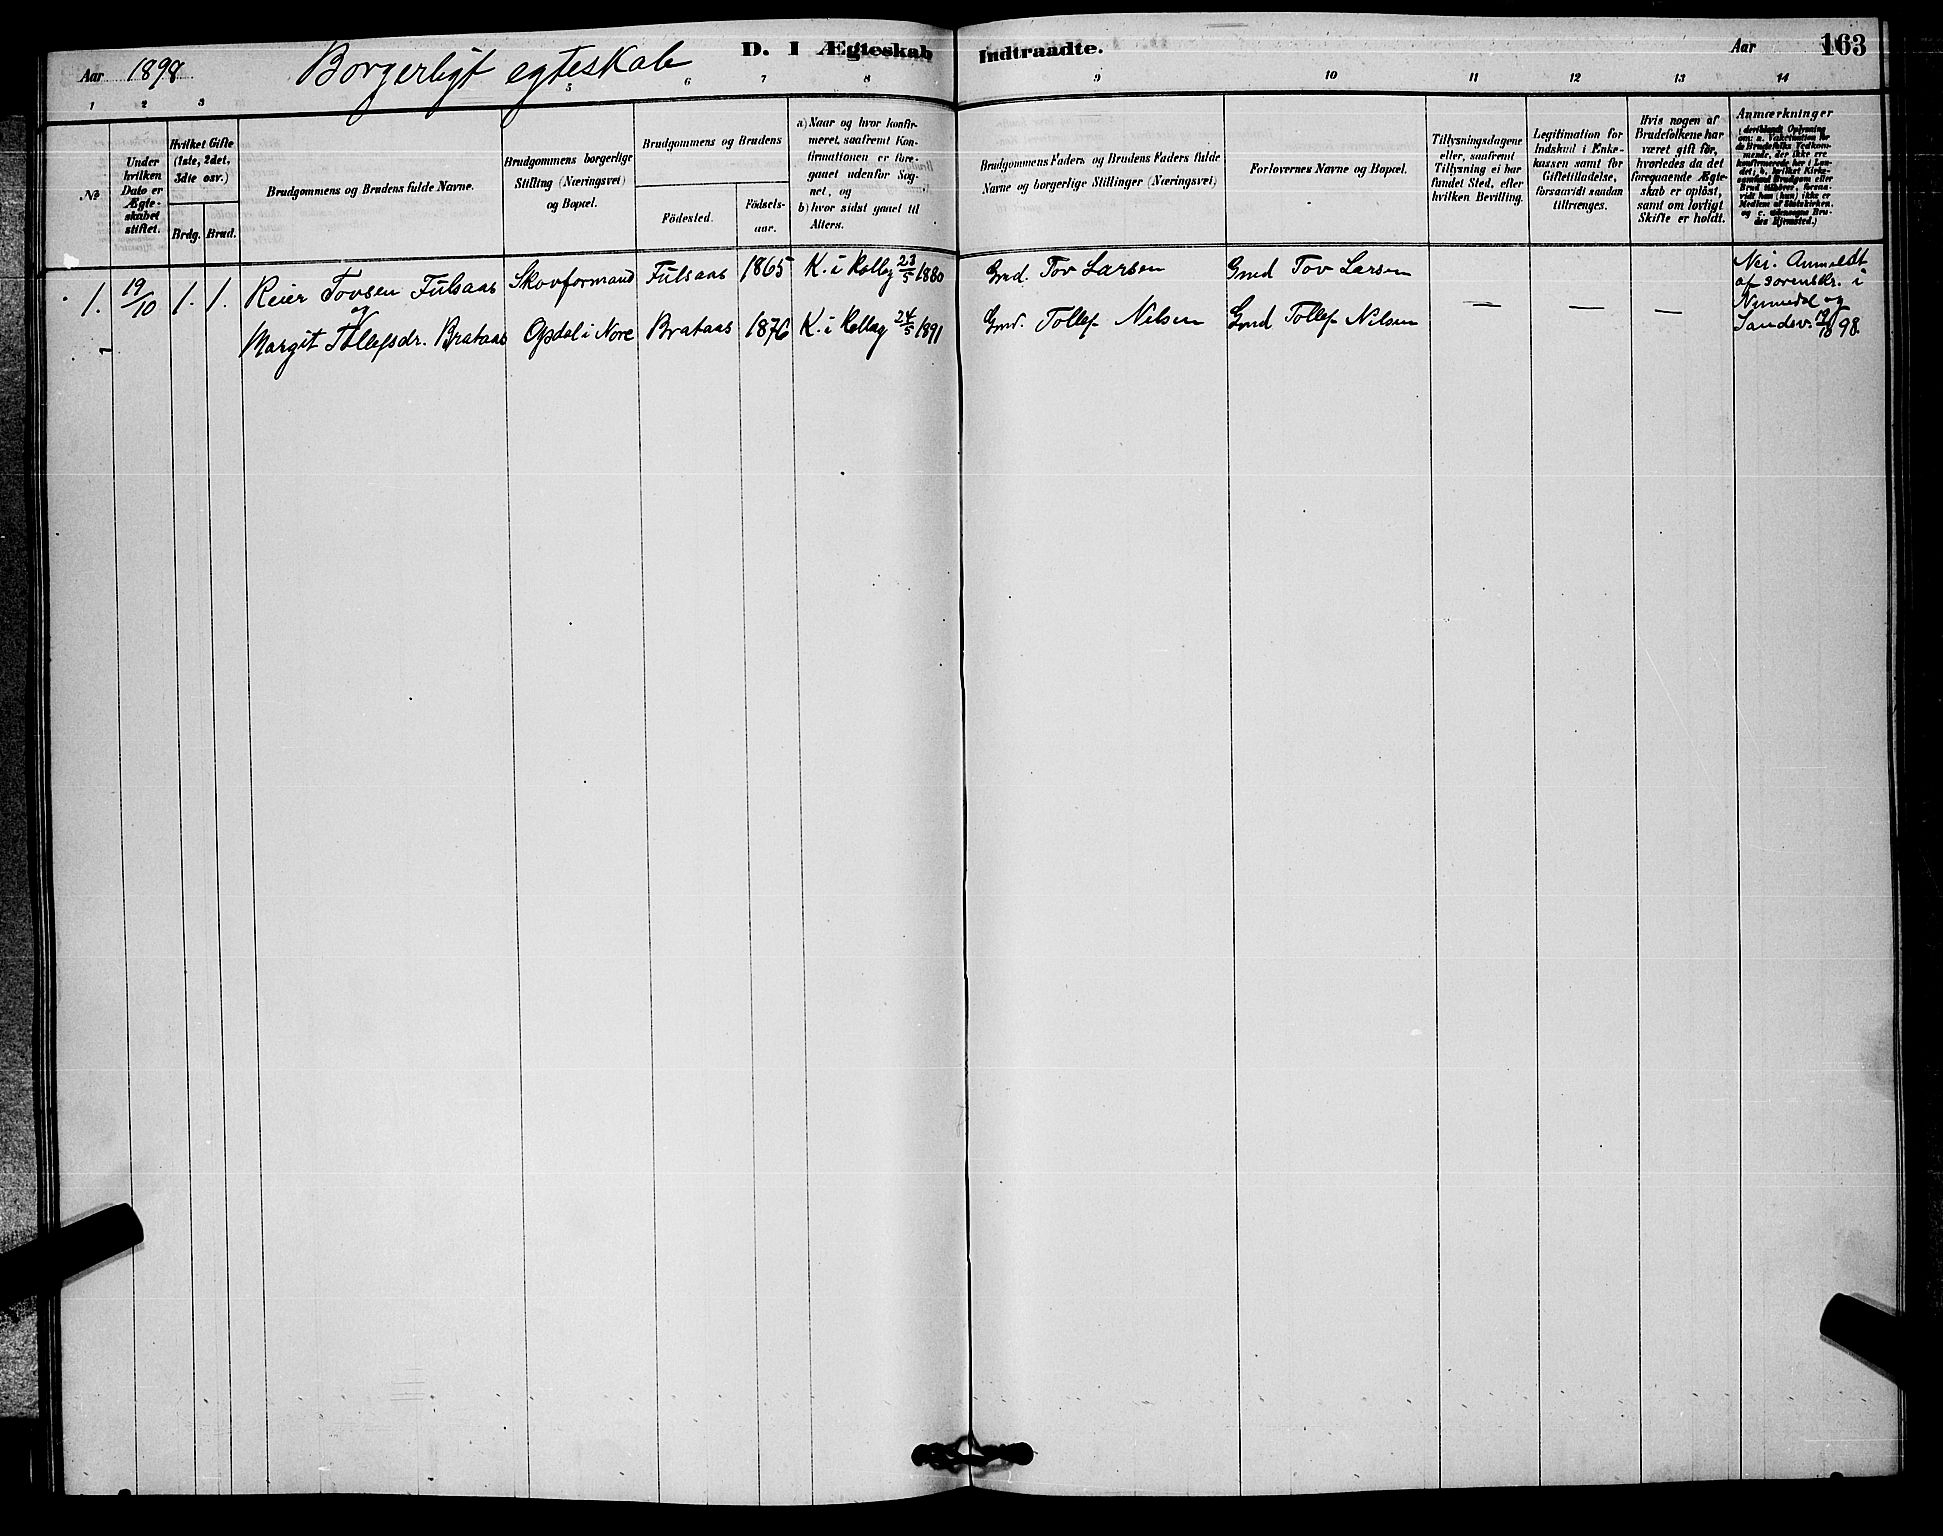 Aar 1898 Borgerligt egteskab D. I Ægteskab Indtraadte. Aar 163
1 2 3 5 6 7 8 9 10 11 12 13 14
No
Under hvilken Dato er Ægteskabet stiftet.
Hvilket Gifte (1ste, 2det, 3die osv.)
Brdg. Brud.
Brudgommens og Brudens fulde Navne.
Brudgommens borgerlige Stilling (Næringsvei) og Bopæl.
Brudgommens og Brudens
Födested. Födselsaar.
a) Naar og hvor konfirmeret, saafremt Konfirmationen er foregaaet udenfor Sognet, og
b) hvor sidst gaaet til Alters.
Brudgommens Faders og Brudens Faders fulde Navne og borgerlige Stillinger (Næringsvei)
Forlovernes Navne og Bopæl.
Tillysningsdagene eller, saafremt Tillysning ei har fundet Sted, efter hvilken Bevilling.
Legitimation for Indskud i Enkekassen samt for Giftetilladelse, forsaavidt saadan tiltrænges.
Hvis nogen af Brudefolkene har været gift før, hvorledes da det foregaaende Ægteskab er oplöst, samt om lovligt Skifte er holdt.
Anmærkninger
(deriblandt Oplysning om: a. Vakcination for de Brudefolks Vedkommende, der ikke ere konfirmerede her i Landet; b. hvilket Kirkesamfund Brudgom eller Brud tilhører, forsaavidt han (hun) ikke er Medlem af Statskirken, og c. Brudes Hjemsted.)
1. 19/10 1. 1. Reier Tovsen Fulsaas Skovformand Fulsaas 1865 K. i Rollag 23/5 1880 Gmd. Tov Larsen Gmd Tov Larsen — — — Nei. Anmeldt
og af sorenskr. i
Margit Tollefsdr. Brataas Opdal i Nore Brataas 1876 K. i Rollag 24/5 1891 Gmd. Tollef Nilsen Gmd Tollef Nilsen Numedal og
Sandsv. 19/10 98.